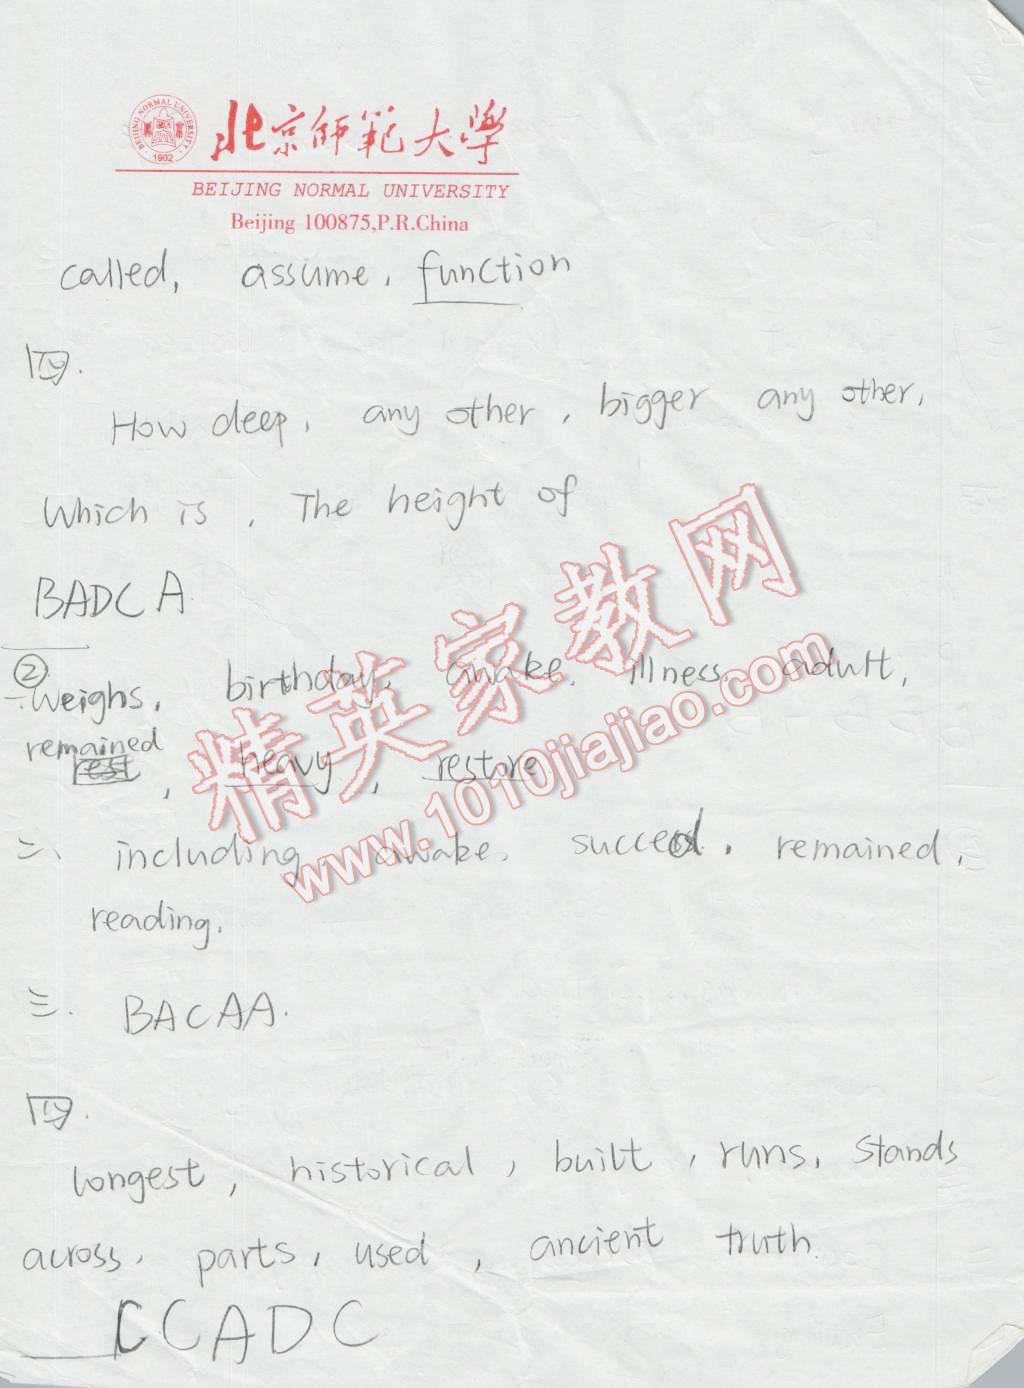 北京师範大学
BEIJING NORMAL UNIVERSITY
1902
BEIJING NORMAL UNIVERSITY
Beijing 100875,P.R.China
called, assume, function
四.
How deep, any other, bigger any other,
Which is, The height of
BADCA.
②
一.weighs, birthday, awake, illness, adult,
remained
rest, heavy, restore
二、including, awake, succeed, remained,
reading.
三. BACAA.
四.
longest, historical, built, runs, stands
across, parts, used, ancient truth.
CCADC
精英家教网
www.1010jiajiao.com